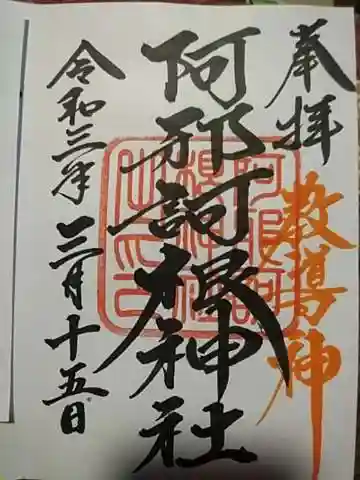 奉拝
教導神
阿邪訶根神社
令和三年
三月十五日